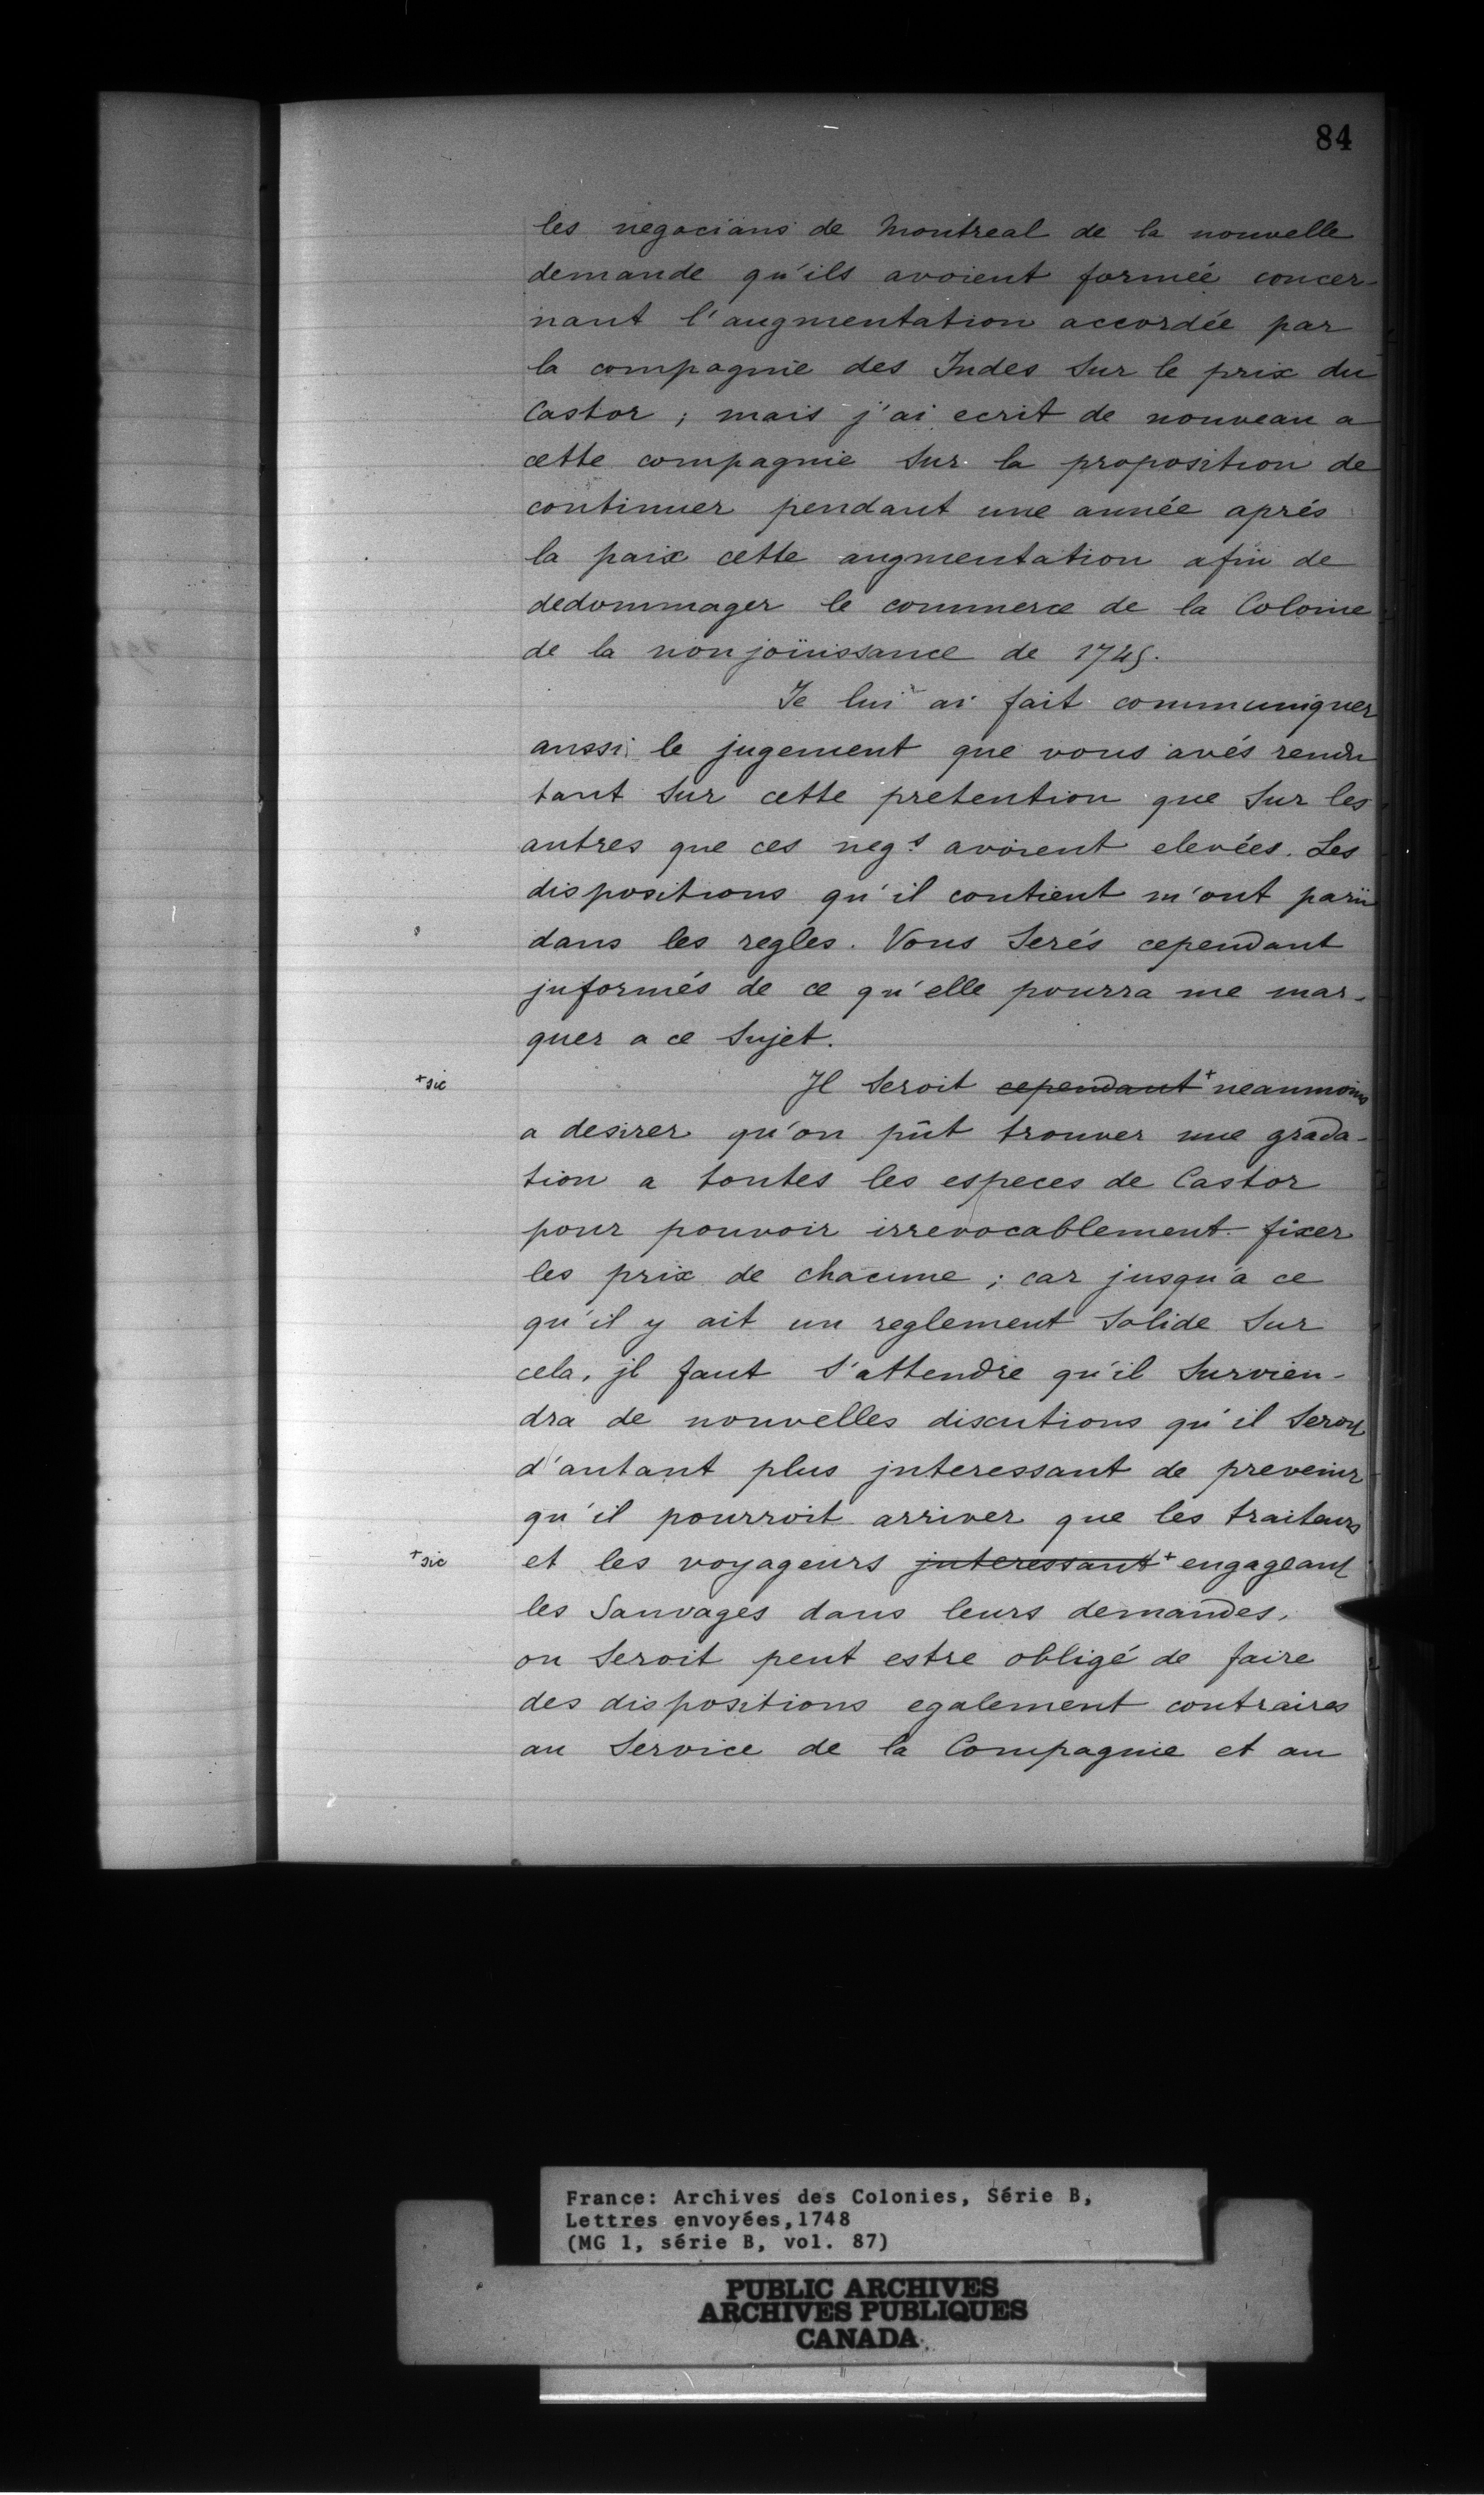 84
les negocians de Montreal de la nouvelle
demande qu'ils avoient formée concer-
nant l'augmentation accordée par
la compagnie des Indes Sur le prix du
Castor ; mais j'ai ecrit de nouveau a
cette compagnie Sur la proposition de
continuer pendant une année aprés
la paix cette augmentation afin de
dedommager le commerce de la Colonie
de la non joüissance de 1745.
Je lui ai fait communiquer
aussi le jugement que vous avés rendu
tant Sur cette pretention que Sur les
autres que ces neg.s avoient elevées. Les
dispositions qu'il contient m'ont parü
dans les regles. Vous Serés cependant
jnformés de ce qu'elle pourra me mar-
quer a ce Sujet.
+sic Jl Seroit ~~cependant~~ + neanmoins
a desirer qu'on pût trouver une grada-
tion a toutes les especes de Castor
pour pouvoir irrevocablement fixer
les prix de chacune ; car jusqu'a ce
qu'il y ait un reglement Solide Sur
cela, jl faut S'attendre qu'il Survien-
dra de nouvelles discutions qu'il Seroit
d'autant plus jnteressant de prevenir
qu'il pourroit arriver que les traiteurs
+sic et les voyageurs ~~jnteressant~~ + engageant
les Sauvages dans leurs demandes,
on Seroit peut estre obligé de faire
des dispositions egalement contraires
au Service de la Compagnie et au
France: Archives des Colonies, Série B,
Lettres envoyées,1748
(MG 1, série B, vol. 87)
PUBLIC ARCHIVES
ARCHIVES PUBLIQUES
CANADA